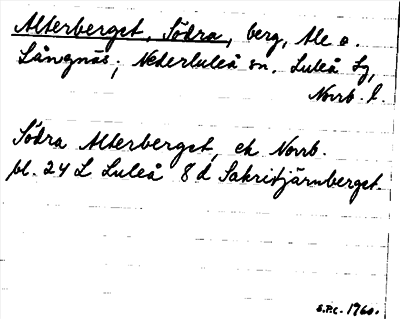 Alterberget, Södra, berg, Ale o.
Långnäs; Nederluleå sn. Luleå lg,
Norrb. l.
Södra Alterberget, ek Norrb.
bl. 24 L Luleå 8 d Sakristjärnberget.
S.P.C. 1960.